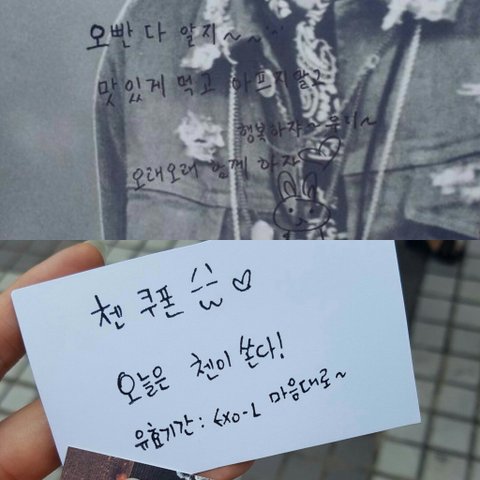 오빤 다 알지~~
맛있게 먹고 아프지말고
행복하자~ 우리~
오래오래 함께 하자
첸 쿠폰
오늘은 첸이 쏜다!
유효기간 : EXO-L 마음대로~